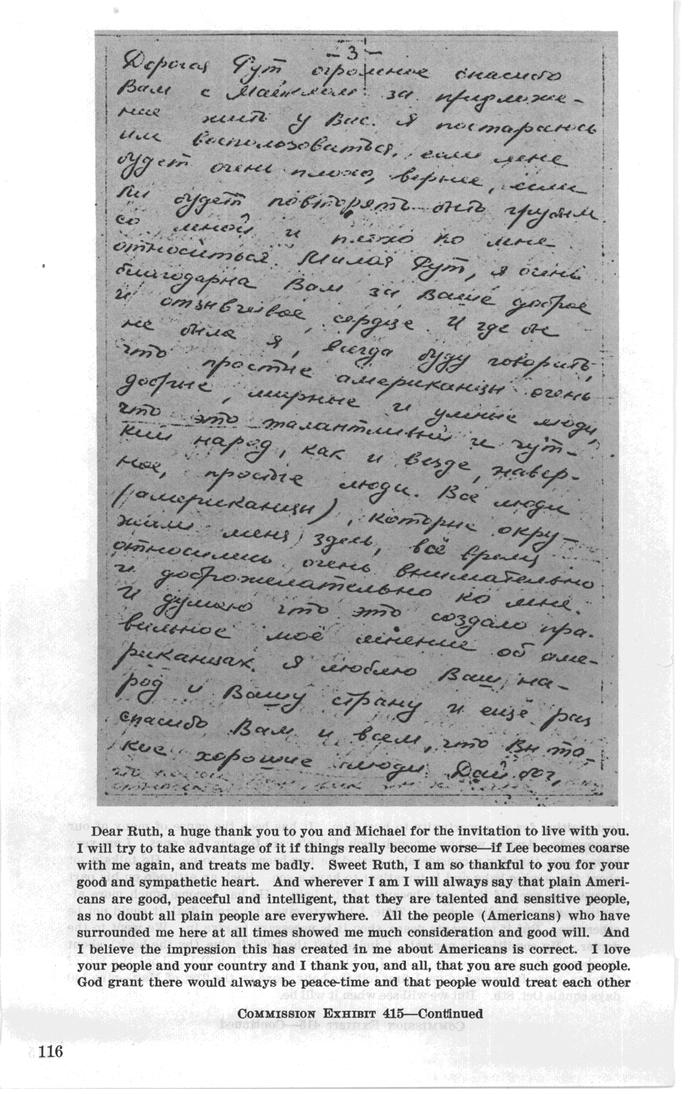 - 3 -
Дорогая Рут огромное спасибо
Вам с Майклом за предложе-
ние жить у Вас. Я постараюсь
им воспользоваться, если мне
будет очень плохо, вернее, если
Ли будет повторять быть грубым
со мной и плохо ко мне
относиться. Милая Рут, я очень
благодарна Вам за Ваше доброе
и отзывчивое, сердце. И где бы
не была я, всегда буду говорить
что простые американцы очень
добрые, мирные и умные люди,
что это талантливый и чут-
кий народ, как и везде, навер-
ное, простые люди. Все люди
(американцы), которые окру-
жали меня здесь, всё время
относились очень внимательно
и доброжелательно ко мне.
И думаю что это создало пра-
вильное моё мнение об аме-
риканцах. Я люблю Ваш на-
род и Вашу страну и ещё раз
спасибо Вам и всем, что Вы та-
кие хорошие люди. Дай бог,
Dear Ruth, a huge thank you to you and Michael for the invitation to live with you.
I will try to take advantage of it if things really become worse—if Lee becomes coarse
with me again, and treats me badly. Sweet Ruth, I am so thankful to you for your
good and sympathetic heart. And wherever I am I will always say that plain Ameri-
cans are good, peaceful and intelligent, that they are talented and sensitive people,
as no doubt all plain people are everywhere. All the people (Americans) who have
surrounded me here at all times showed me much consideration and good will. And
I believe the impression this has created in me about Americans is correct. I love
your people and your country and I thank you, and all, that you are such good people.
God grant there would always be peace-time and that people would treat each other
COMMISSION EXHIBIT 415—Continued
116